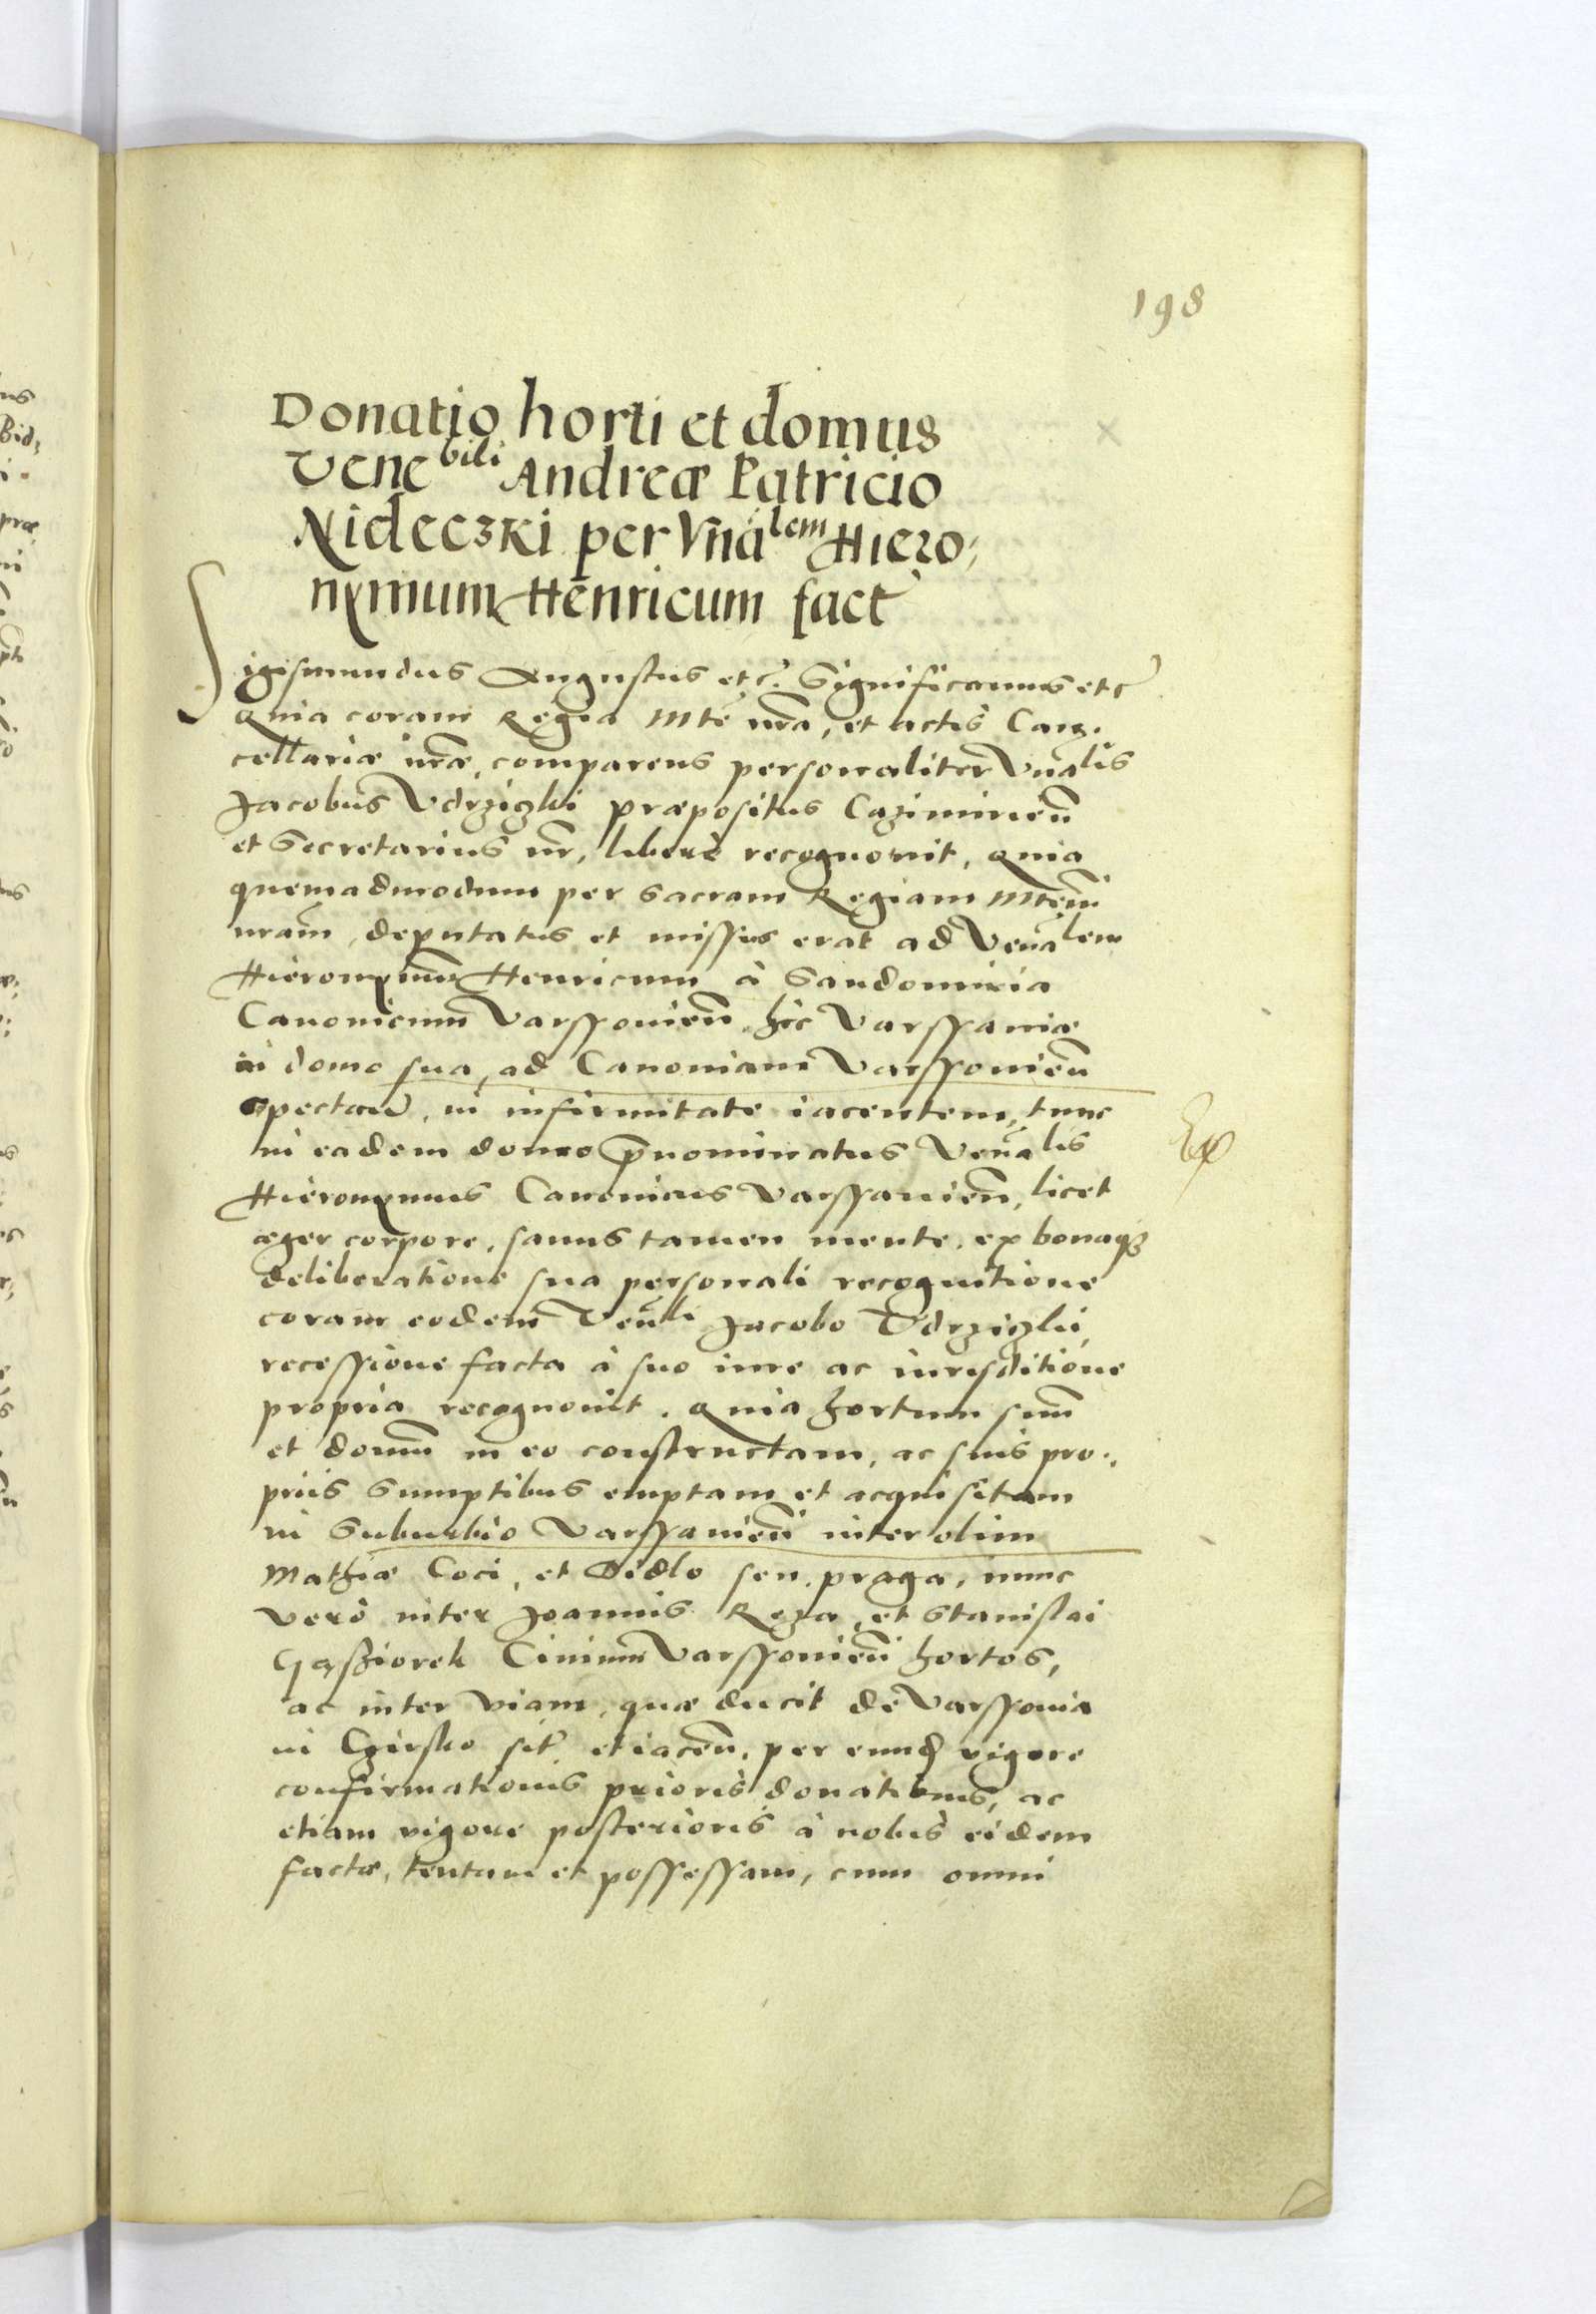 198
Donatio horti et domus
Venebili Andreæ Patricio
Nideczki per Vnalem Hiero,
nymum Henricum fact
Sigismundus Augustus etc. Significamus etc
Quia coram Regia Mte nra, et actis Can,
cellariæ nræ, comparens personaliter Vnalis
Jacobus Vdrziczki præpositus Cazimirien
et Secretarius nr, liberè recognouit, quia
quemadmodum per sacram Regiam Mtem
nram, deputatus et missus erat ad Venalem
Hieronymum Henricum à Sandomiria
Canonicum Varssouien, hic Varssauiæ
in domo sua, ad Canoniam Varssouien
spectan, in infirmitate iacentem, tunc
in eadem domo prnominatus Venalis
Hieronymus Canonicus Varssauien, licet
æger corpore, sanus tamen mente, ex bonaq3
deliberatione sua personali recognitione
coram eodem Venli Jacobo Vdrziczki,
recessione facta à suo iure ac iurisditione
propria recognouit. Quia hortum suum
et domum in eo constructam, ac suis pro,
priis sumptibus emptam et acquisitam
in Suburbio Varssauien inter olim
Mathiæ Coci, et Didlo seu praga, nunc
verò inter Joannis Reza, et Stanislai
Ciuium Varssouien hortos,
ac inter viam, quæ ducit de Varssouia
in Czirsko sit et iacen, per eund vigore
confirmationis prioris donationis, ac
etiam vigore posterioris à nobis eidem
factæ, tentam et possessam, cum omni